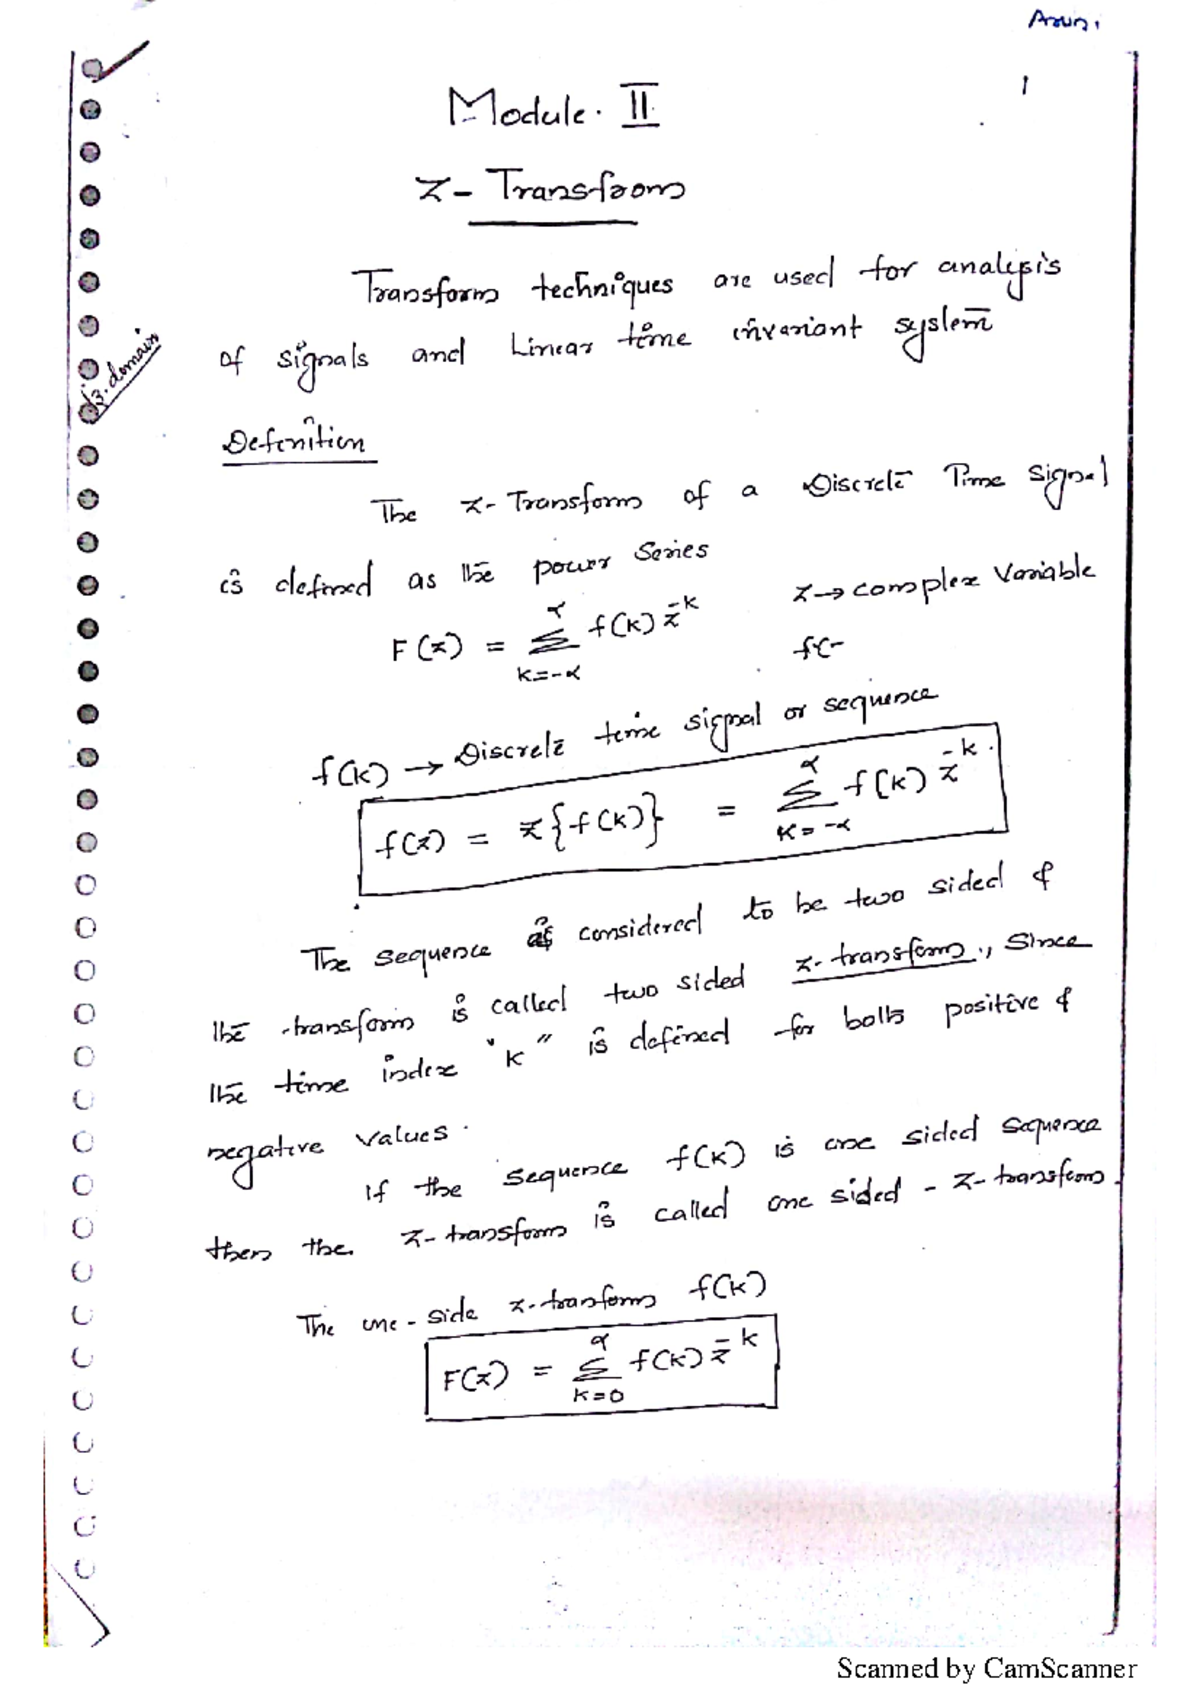 1
Module. II
Z- Transform
Transform techniques are used for analysis
of signals and Linear time invariant system
z. domain
Definition
The Z-Transform of a Discrete Time Signal
is defined as the power series
F(z) = ∑ f(k) z^-k
k=-∝ ∝
z→ complex Variable
f(-
f(k) → Discrete time signal or sequence
f(z) = z{f(k)} = ∑ f(k) z^-k.
k=-∝ ∝
The sequence is considered to be two sided &
the transform is called two sided z-transform., Since
the time index "k" is defined for both positive &
negative values.
If the sequence f(k) is one sided sequence
then the z-transform is called one sided - z-transform.
The one-side z-transform f(k)
F(z) = ∑ f(k) z^-k
k=0 ∝
Scanned by CamScanner